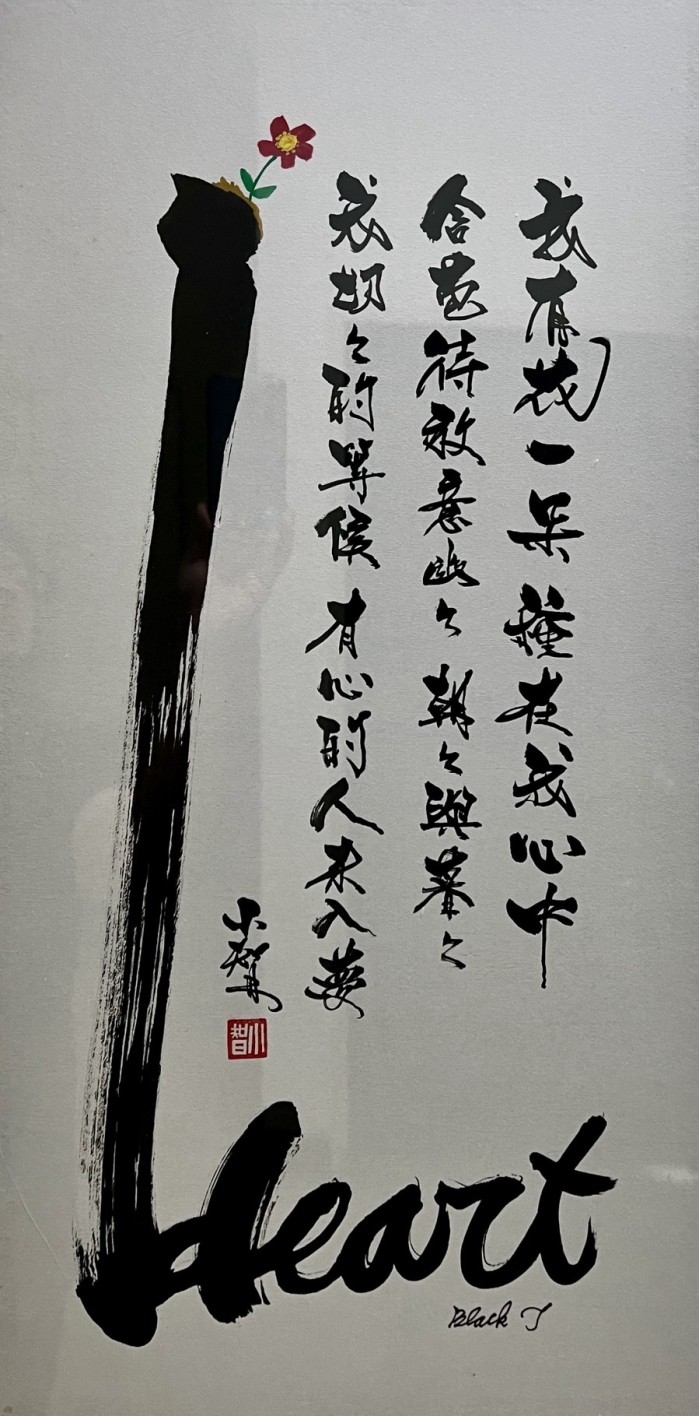 我有花一朵 種在我心中
含苞待放意幽々 朝々與暮々
我切々的等候 有心的人来入夢
小智
heart
Black J